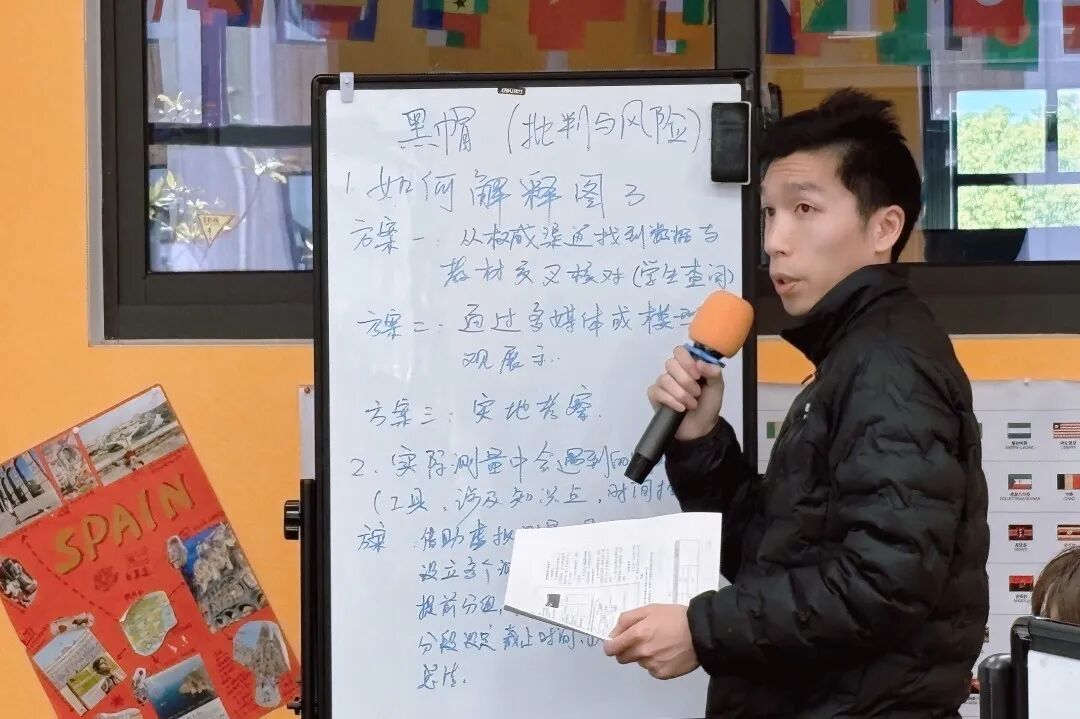 黑帽（批判与风险）
1. 如何解释图3
方案一：从权威渠道找到数据与
教材交叉核对（学生查阅）
方案二：通过多媒体或模型
观展示.
方案三：实地考察.
2. 实际测量中会遇到的
（工具、涉及知识点、时间
方案：借助虚拟
设立多个
提前分组,
分段设定截止时间,
总结。
SPAIN